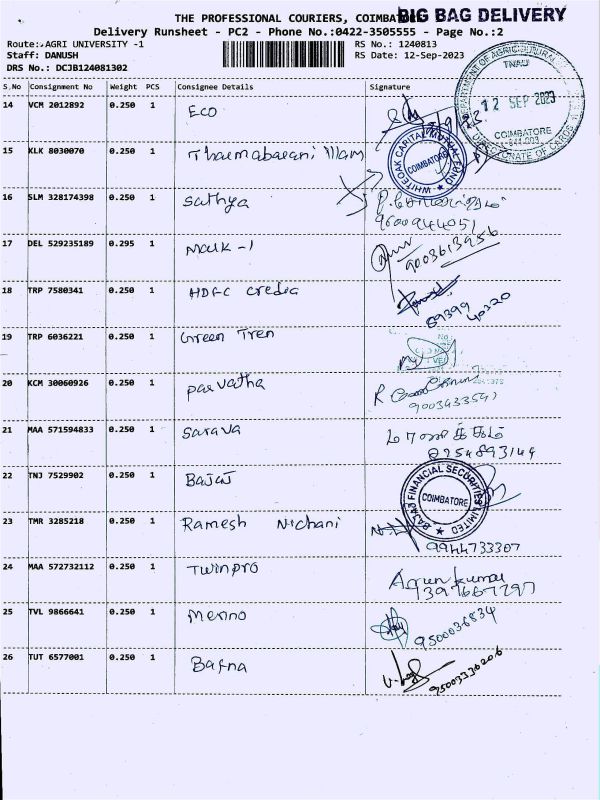 THE PROFESSIONAL COURIERS, COIMBATORE
BIG BAG DELIVERY
Delivery Runsheet - PC2 - Phone No.:0422-3505555 - Page No.:2
Route:-AGRI UNIVERSITY -1 RS No.: 1240813
Staff: DANUSH RS Date: 12-Sep-2023
DRS No.: DCJB124081302
S.No Consignment No Weight PCS Consignee Details Signature
14 VCM 2012892 0.250 1 Eco
DEPARTMENT OF AGRICULTURAL
TNAU
12 SEP 2023
COIMBATORE
15 KLK 8030070 0.250 1
WHITEOAK CAPITAL MUTUAL FUND
COIMBATORE
16 SLM 328174398 0.250 1 Sathya
9600944051
17 DEL 529235189 0.295 1 Mark -1
9003613956
18 TRP 7580341 0.250 1 HDFC credia
89399
40320
19 TRP 6036221 0.250 1 Green Tren
20 KCM 30060926 0.250 1 parvatha
R
9003433541
21 MAA 571594833 0.250 1 Sarava
8254893144
22 TNJ 7529902 0.250 1 Bajaj
BAJAJ FINANCIAL SECURITIES LIMITED
COIMBATORE
23 TMR 3285218 0.250 1 Ramesh Nichani
9944733307
24 MAA 572732112 0.250 1 Twinpro
Arun kumar
7397667297
25 TVL 9866641 0.250 1 Merino
9500036834
26 TUT 6577001 0.250 1 Bafna
95003336206